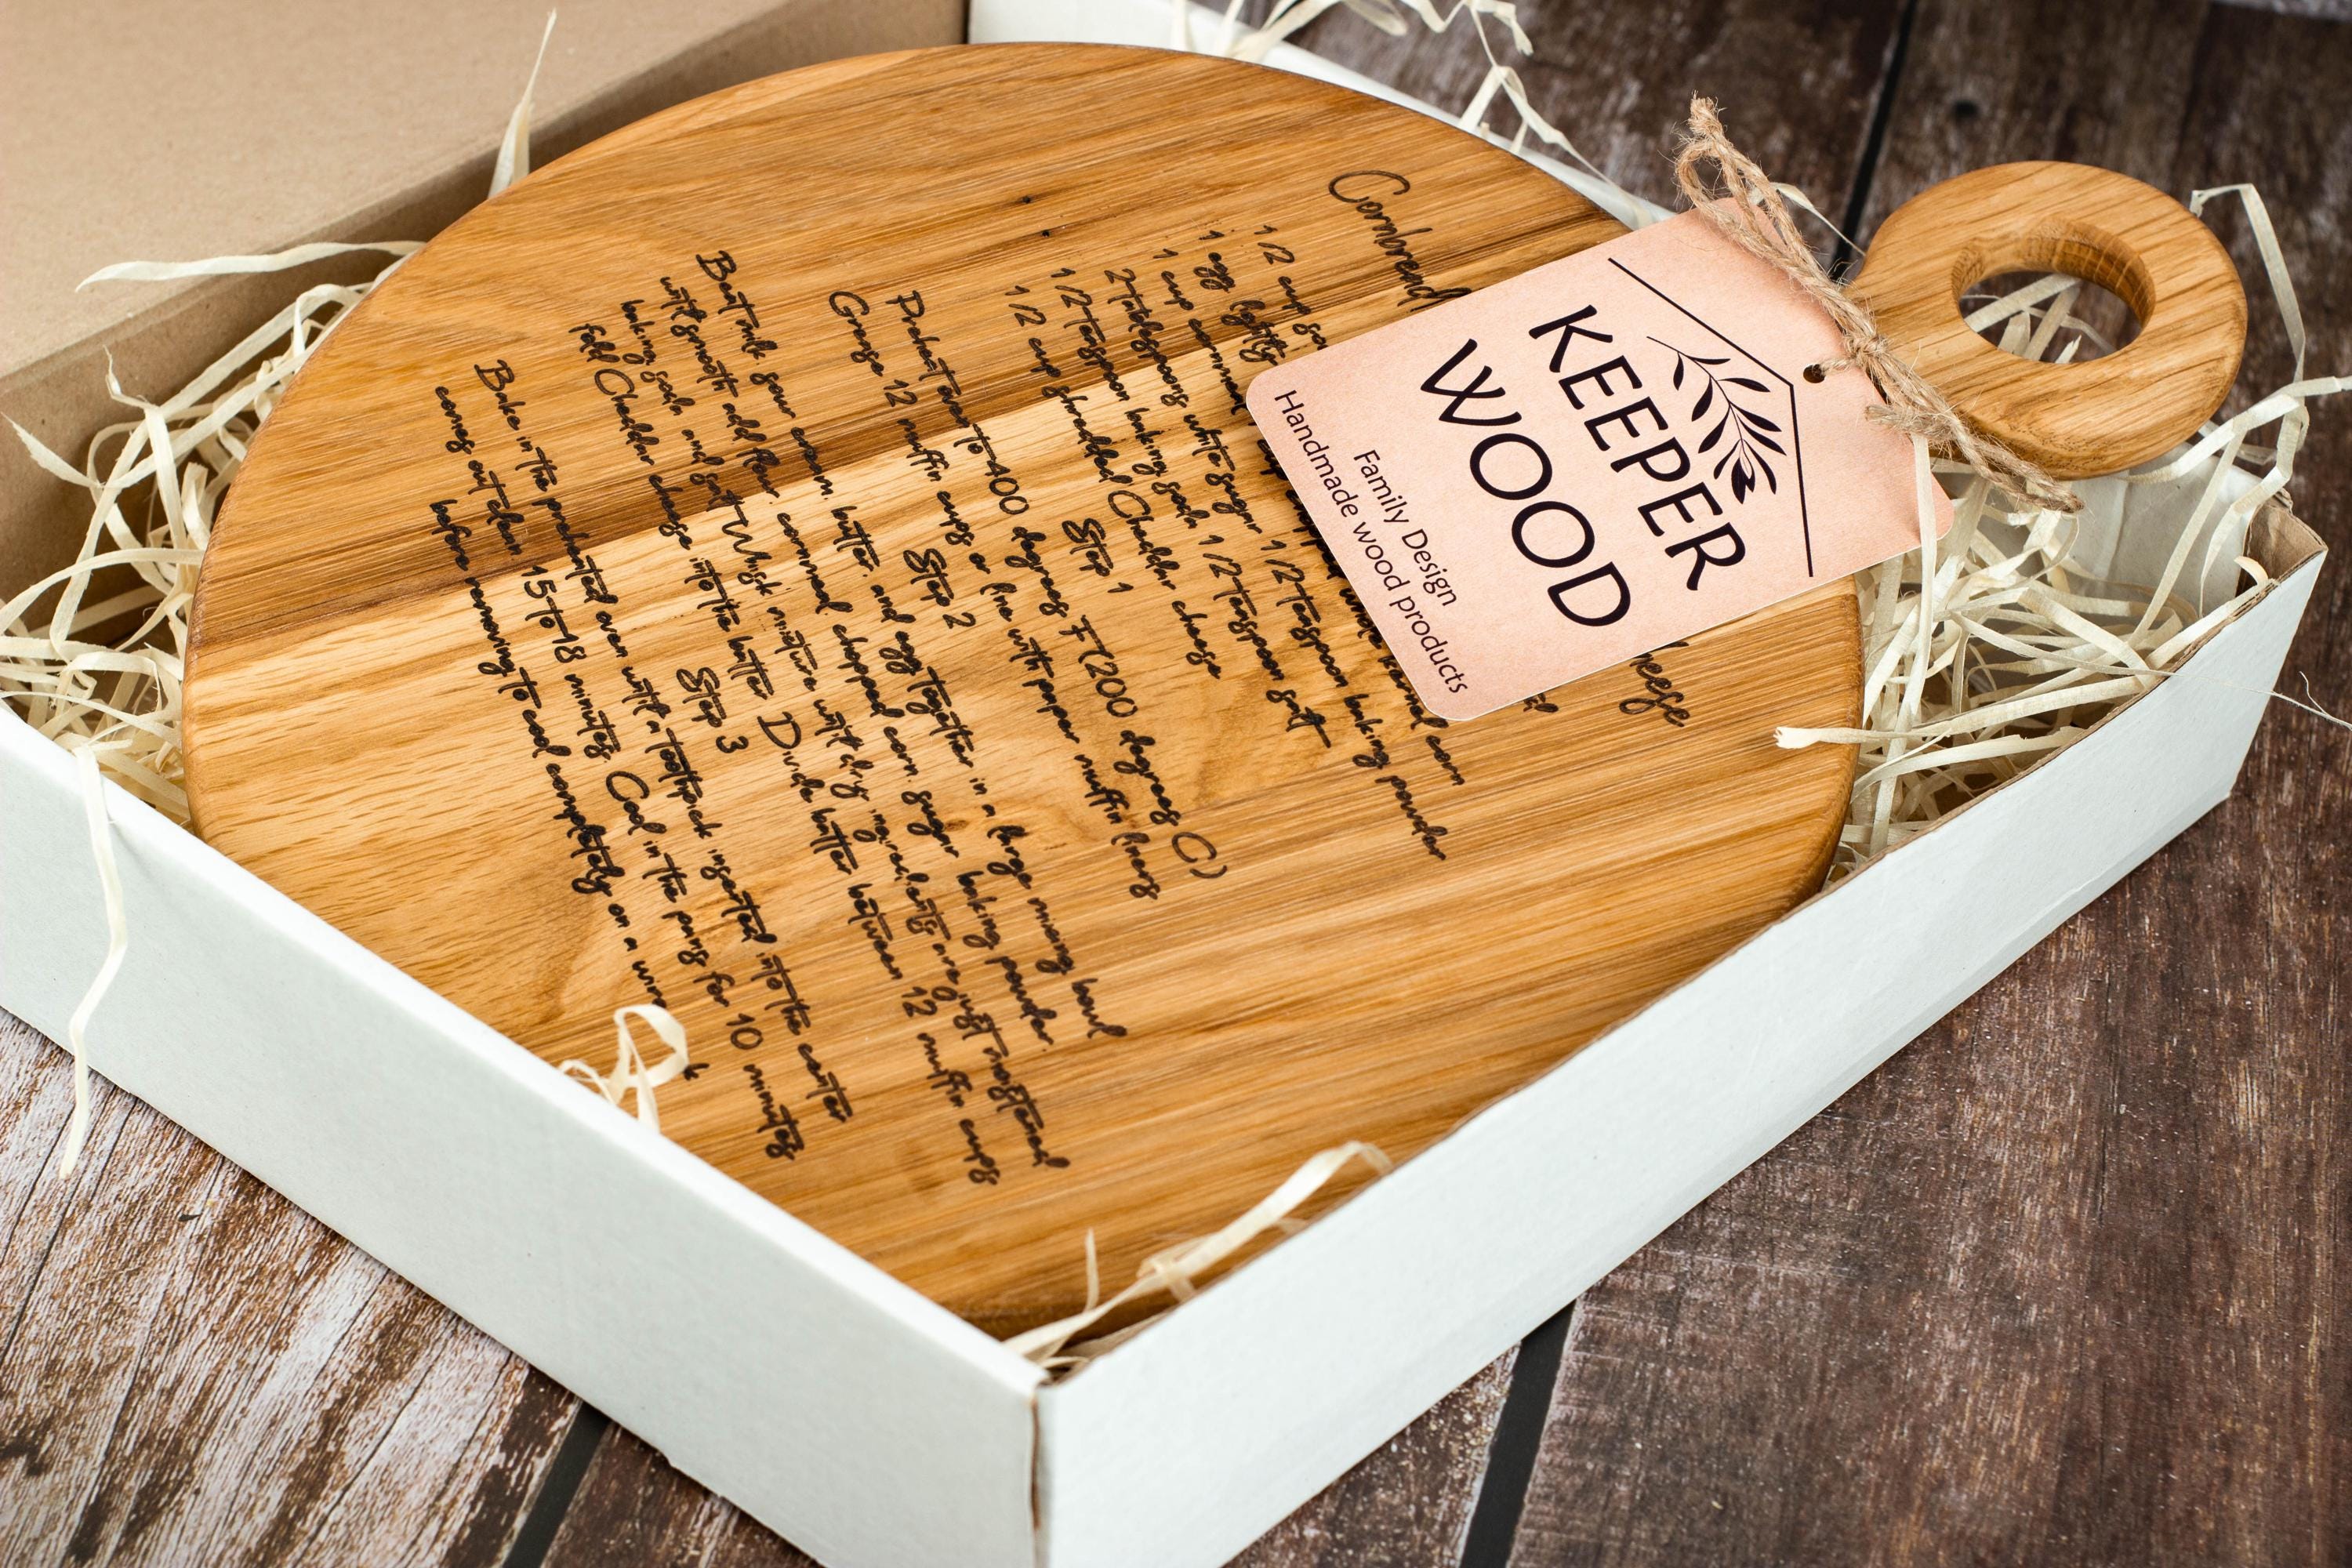 Cornbread
cheese
1/2 cup
1 egg lightly
1 cup cornmeal kernel corn
2 tablespoons white sugar 1/2 teaspoon baking powder
1/2 teaspoon baking soda 1/2 teaspoon salt
1/2 cup shredded Cheddar cheese
Step 1
Preheat oven to 400 degrees F (200 degrees C)
Grease 12 muffin cups or line with paper muffin liners
Step 2
Beat milk sour cream butter and egg together in a large mixing bowl
until smooth add flour cornmeal chopped corn sugar baking powder
baking soda and salt Whisk mixture until dry ingredients are just moistened
fold Cheddar cheese into the batter Divide batter between 12 muffin cups
Step 3
Bake in the preheated oven until a toothpick inserted into the center
comes out clean 15 to 18 minutes Cool in the pans for 10 minutes
before removing to cool completely on a wire
KEEPER
WOOD
Family Design
Handmade wood products